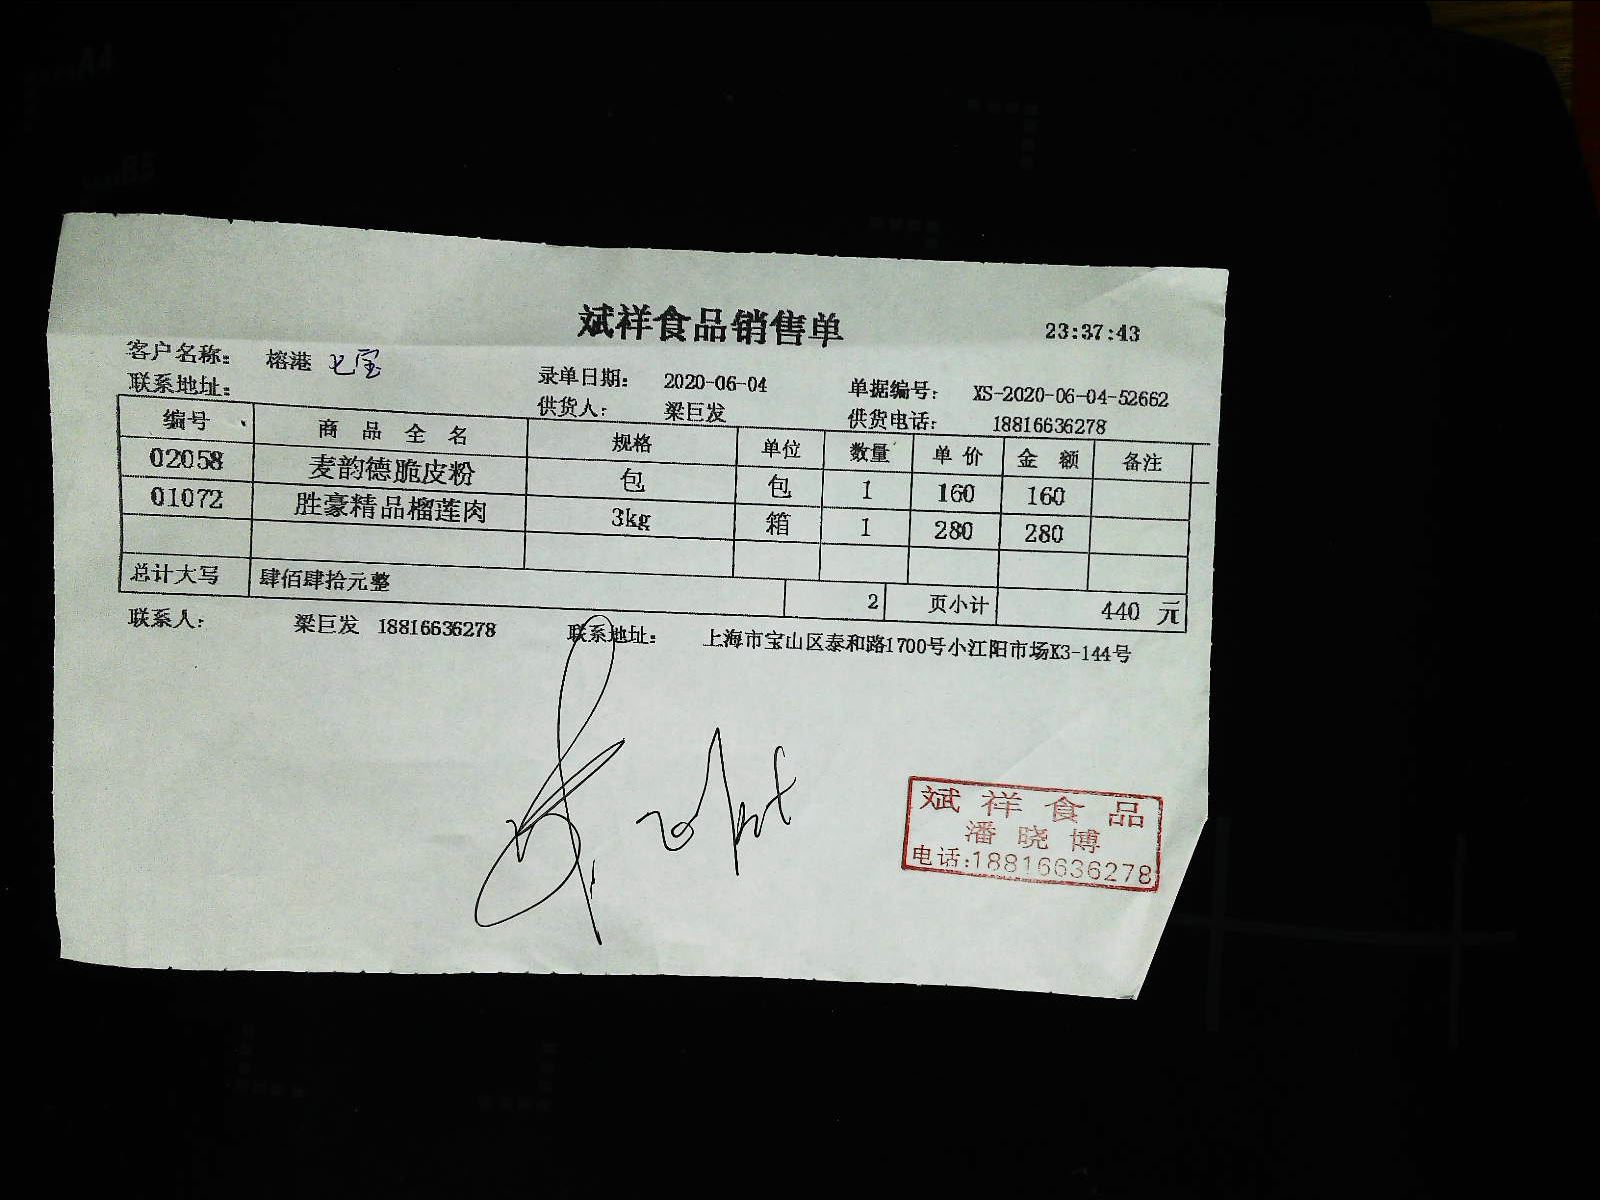 斌祥食品销售单 23:37:43
客户名称: 榕港 七宝 录单日期: 2020-06-04 单据编号: XS-2020-06-04-52662
联系地址: 供货人: 梁巨发 供货电话: 18816636278
编号 商品全名 规格 单位 数量 单价 金额 备注
02058 麦韵德脆皮粉 包 包 1 160 160
01072 胜豪精品榴莲肉 3kg 箱 1 280 280
总计大写 肆佰肆拾元整 2 页小计 440 元
联系人: 梁巨发 18816636278 联系地址: 上海市宝山区泰和路1700号小江阳市场K3-144号
斌祥食品
潘晓博
电话:18816636278
A4
B5